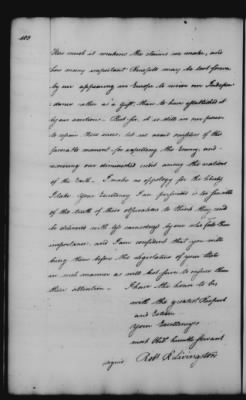 How much it weakens the claims we make, and
how many important Benefits may be lost forever
by our appearing in Europe to receive our Indepen
-dence rather as a gift, than to have established it
by our exertions. But Sir, it is still in our power
to repair these errors, let us avail ourselves of this
favorable moment for expelling the Enemy, and
recovering our diminished credit among the nations
of the Earth. I make no apology for the Liberty
I take. Your Excellency I am persuaded is too sensible
of the truth of these observations to think they could
be delivered with less earnestness by one who feels their
importance, and I am confident that you will
bring them before the Legislature of your State
in such manner as will best serve to enforce them
their attention. I have the honor to be
with the greatest Respect
and Esteem
Your Excellency's
most Obt humble servant
signed Robt R. Livingston